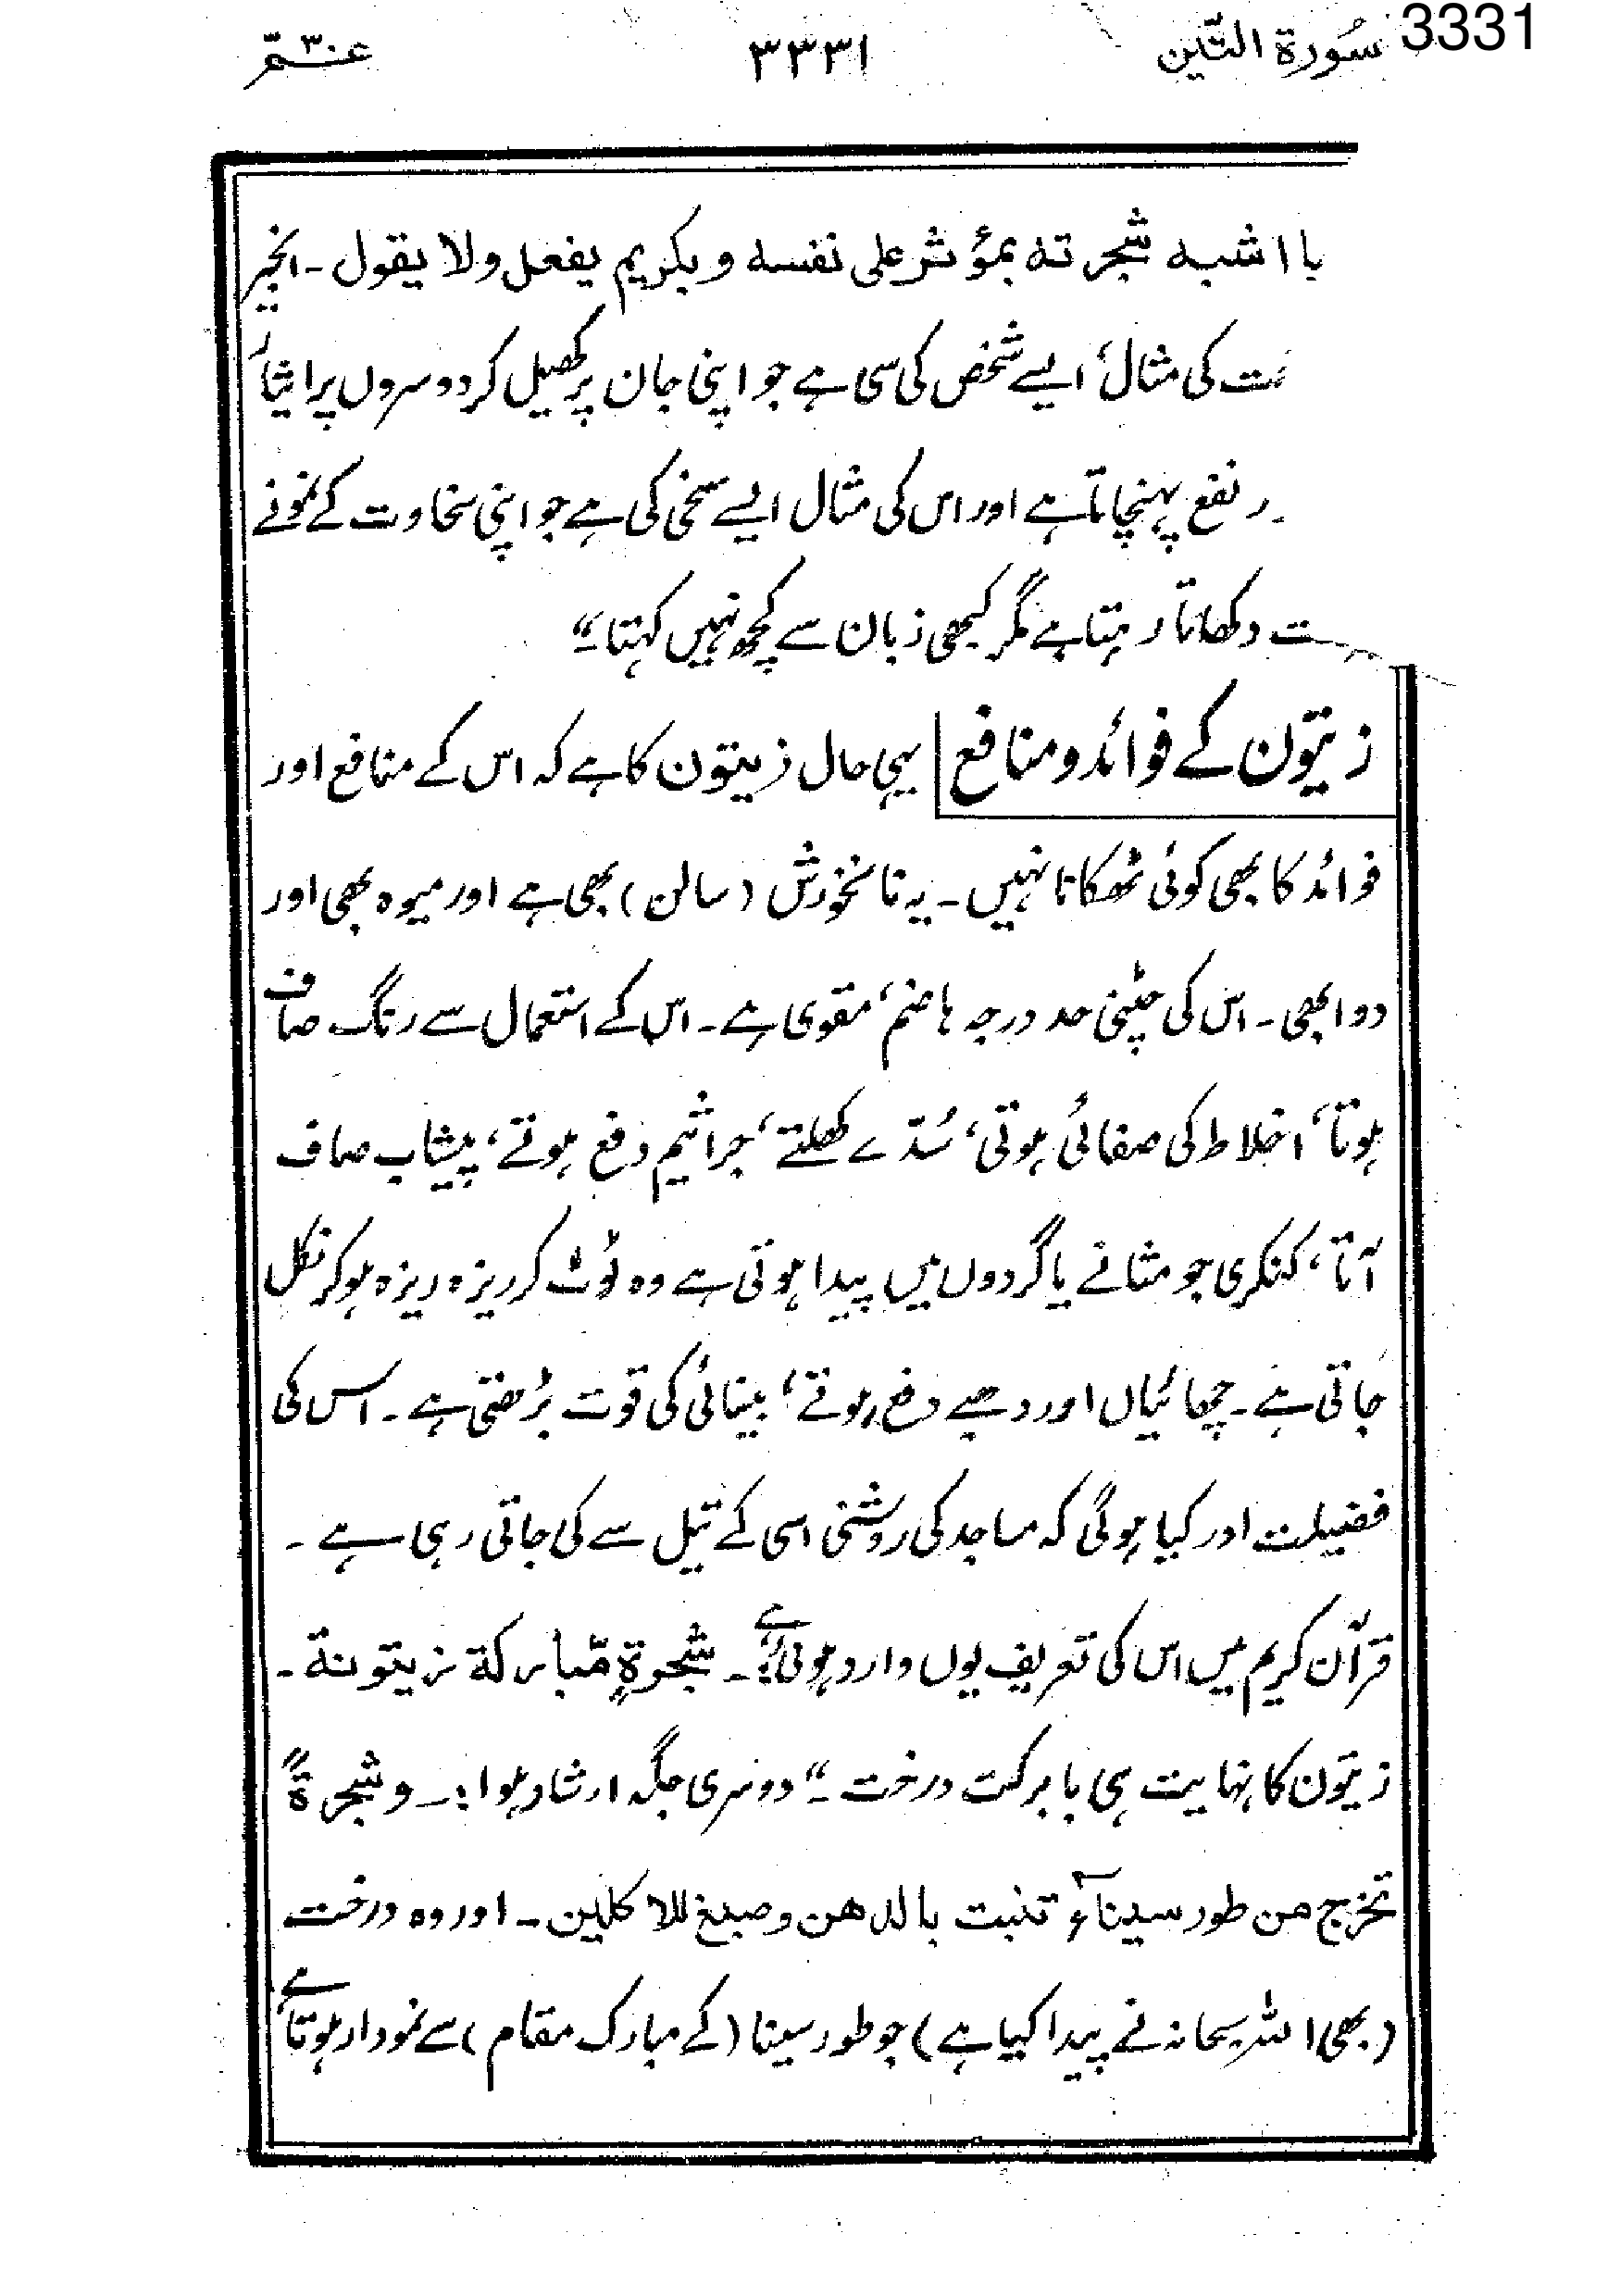 3331
سُورة التّین ۳۳۳۱ عنتمّ ۳۰
با اشبہ شجرتہ بمؤثر علی نفسہ و بکریم یفعل ولا یقول۔ انجیر
کی مثال، ایسے شخص کی سی ہے جو اپنی جان پر کھیل کر دوسروں پر ایثار
نفع پہنچاتا ہے اور اس کی مثال ایسے سخی کی ہے جو اپنی سخاوت کے نمونے
دکھاتا رہتا ہے مگر کبھی زبان سے کچھ نہیں کہتا۔"
زیتون کے فوائد و منافع یہی حال زیتون کا ہے کہ اس کے منافع اور
فوائد کا بھی کوئی ٹھکانا نہیں۔ یہ نانخورش (سالن) بھی ہے اور میوہ بھی اور
دوا بھی۔ اس کی چٹنی حد درجہ ہاضم، مقوی ہے۔ اس کے استعمال سے رنگ صاف
ہوتا، اخلاط کی صفائی ہوتی، سُدّے کھلتے، جراثیم دفع ہوتے، پیشاب صاف
آتا، کنکری جو مثانے یا گردوں میں پیدا ہوتی ہے وہ ٹوٹ کر ریزہ ریزہ ہو کر نکل
جاتی ہے۔ چھائیاں اور دھبے دفع ہوتے، بینائی کی قوت بڑھتی ہے۔ اس کی
فضیلت اور کیا ہوگی کہ مساجد کی روشنی اسی کے تیل سے کی جاتی رہی ہے۔
قرآن کریم میں اس کی تعریف یوں وارد ہوئی ہے:۔ شجرةٍ مّبارکة زیتونة۔
زیتون کا نہایت ہی بابرکت درخت۔" دوسری جگہ ارشاد ہوا:۔ و شجرةً
تخرج من طور سیناۤء تنبت بالدھن و صبغ للاٰکلین۔ اور وہ درخت
(بھی اللہ سبحانہ نے پیدا کیا ہے) جو طور سینا (کے مبارک مقام) سے نمودار ہوتا ہے